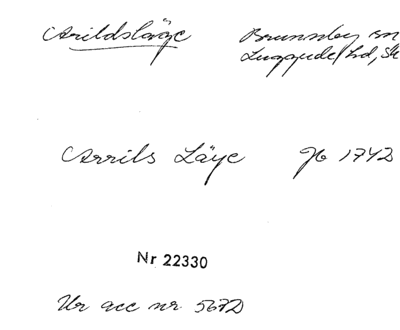 Arildsläge Brunnby sn
Luggude hd, Sk
Arrils Läye Jb 1742
Nr 22330
Ur acc nr 5672